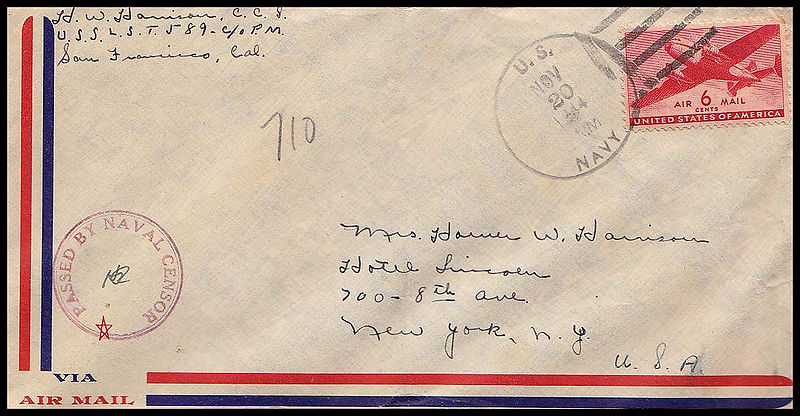 H. W. Harrison, C. C. S.
U. S. S. L. S. T. 589 - C/O P. M.
San Francisco, Cal.
U. S. NAVY
NOV
20
AM
AIR 6 MAIL
CENTS
UNITED STATES OF AMERICA
710
PASSED BY NAVAL CENSOR
Mrs. Homer W. Harrison
Hotel Lincoln
700 - 8th Ave.
New York, N. Y.
U. S. A.
VIA
AIR MAIL